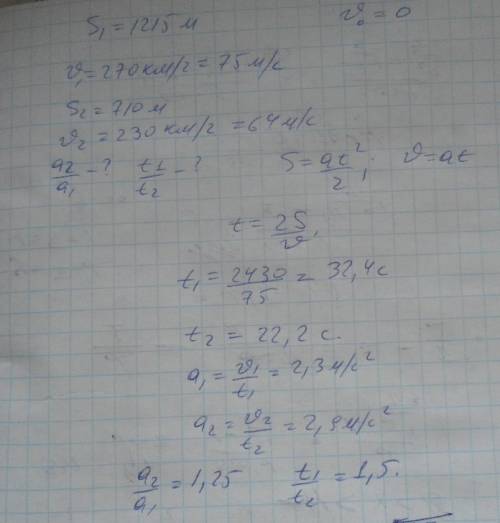 S₁ = 1215 м   ϑ₀ = 0
ϑ₁ = 270 км/г = 75 м/с
S₂ = 710 м
ϑ₂ = 230 км/г = 64 м/с
a₂/a₁ - ?   t₁/t₂ - ?   S = at²/2 ;   ϑ = at
t = 2S/ϑ ,
t₁ = 2430/75 = 32,4 с
t₂ = 22,2 с.
a₁ = ϑ₁/t₁ = 2,3 м/с²
a₂ = ϑ₂/t₂ = 2,9 м/с²
a₂/a₁ = 1,25   t₁/t₂ = 1,5.